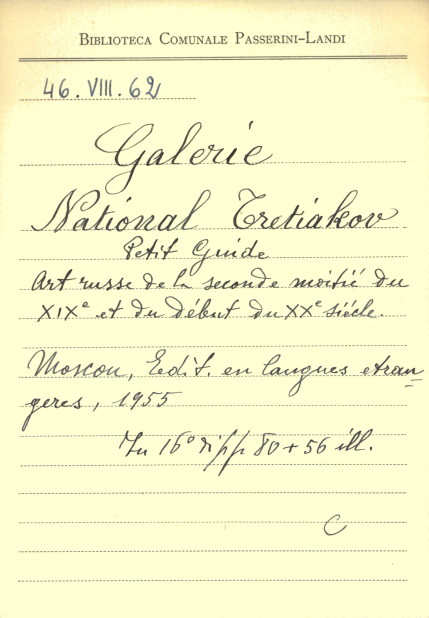 BIBLIOTECA COMUNALE PASSERINI-LANDI
46. VIII. 62
Galerie
National Tretiakov
Petit Guide
Art russe de la seconde moitié du
XIXe et du début du XXe siécle.
Moscou, Edit. en langues etran=
geres, 1955
In 16° di pp 80 + 56 ill.
C